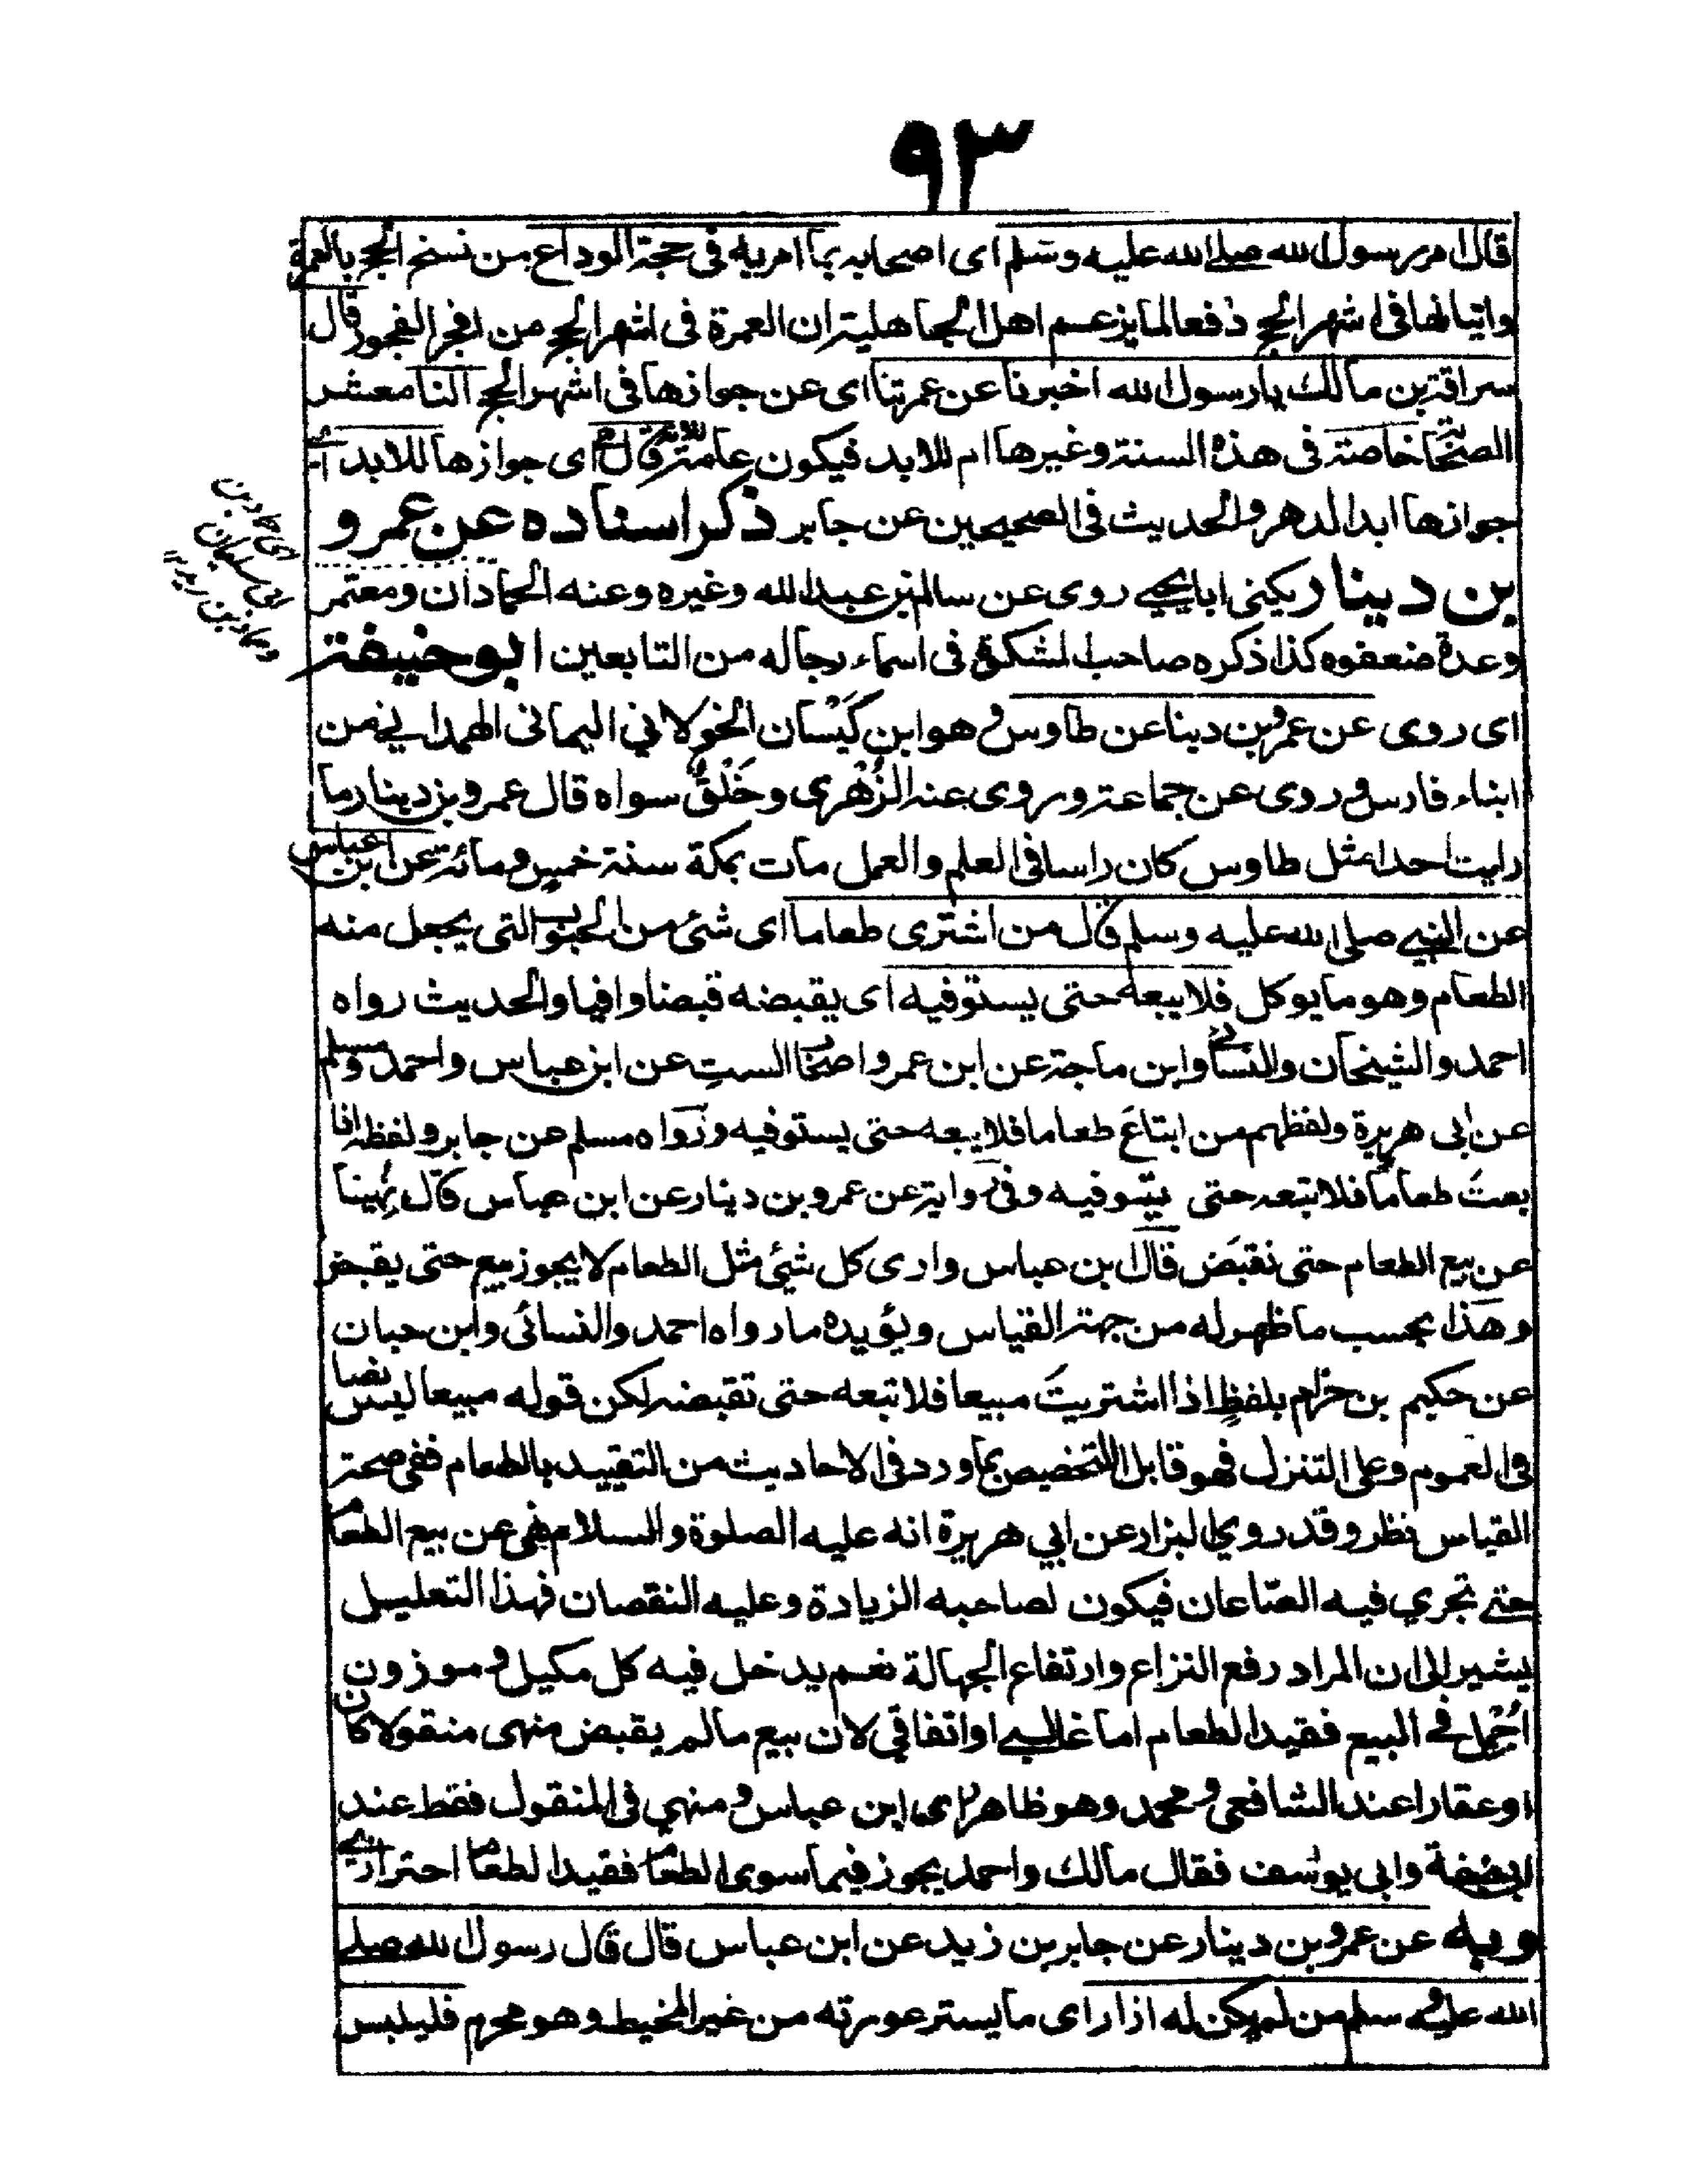 ٩٣
قال امر رسول الله صلى الله عليه وسلم اى اصحابه بما امر به فى حجة الوداع من نسخ الحج بالعمرة
واتيانها فى اشهر الحج دفعا لما يزعم اهل الجاهلية ان العمرة فى اشهر الحج من افجر الفجور قال
سراقة بن مالك يا رسول الله اخبرنا عن عمرتنا اى عن جوازها فى اشهر الحج النا معشر
الصحابة خاصة فى هذه السنة وغيرها ام للابد فيكون عامة قال للابد اى جوازها للابد اى
جوازها ابد الدهر والحديث فى الصحيحين عن جابر ذكر اسناده عن عمرو
بن دينار يكنى ابا يحيى روى عن سالم بن عبد الله وغيره وعنه الحمادان ومعتمر
اى حماد بن
ابى سليمان
وحماد بن زيد
وعدة ضعفوه كذا ذكره صاحب المشكوة فى اسماء رجاله من التابعين ابو حنيفة
اى روى عن عمرو بن دينا عن طاوس وهو ابن كيسان الخولاني اليمانى الهمداني من
ابناء فارس وروى عن جماعة وروى عنه الزهرى وخلق سواه قال عمرو بن دينار ما
رايت احدا مثل طاوس كان راسا فى العلم والعمل مات بمكة سنة خمس ومائة عن ابن عباس
عن النبى صلى الله عليه وسلم قال من اشترى طعاما اى شئ من الحبوب التى يجعل منه
الطعام وهو ما يوكل فلا يبعه حتى يستوفيه اى يقبضه قبضا وافيا والحديث رواه
احمد والشيخان والنسائى وابن ماجة عن ابن عمر واصحاب الست عن ابن عباس واحمد ومسلم
عن ابى هريرة ولفظهم من ابتاع طعاما فلا يبعه حتى يستوفيه ورواه مسلم عن جابر ولفظه اذا
بعت طعاما فلا تبعه حتى يستوفيه وفى رواية عن عمرو بن دينار عن ابن عباس قال نهينا
عن بيع الطعام حتى نقبض قال ابن عباس وارى كل شئ مثل الطعام لا يجوز بيع حتى يقبض
وهذا بحسب ما ظهر له من جهة القياس ويؤيده ما رواه احمد والنسائى وابن حبان
عن حكيم بن حزام بلفظ اذا اشتريت مبيعا فلا تبعه حتى تقبضه لكن قوله مبيعا ليس نصا
فى العموم وعلى التنزل فهو قابل للتخصيص بما ورد فى الاحاديث من التقييد بالطعام ففى صحة
القياس نظر وقد روي البزار عن ابي هريرة انه عليه الصلوة والسلام نهى عن بيع الطعام
حتى تجري فيه الصاعان فيكون لصاحبه الزيادة وعليه النقصان فهذا التعليل
يشير الى ان المراد رفع النزاع وارتفاع الجهالة نعم يدخل فيه كل مكيل وموزون
اجمل في البيع فقيد الطعام اما غالبى او اتفاقي لان بيع ما لم يقبض منهى منقولا كان
او عقارا عند الشافعى ومحمد وهو ظاهر راى ابن عباس ومنهي فى المنقول فقط عند
ابى حنيفة وابي يوسف فقال مالك واحمد يجوز فيما سوى الطعام فقيد الطعام احترازى
وبه عن عمرو بن دينار عن جابر بن زيد عن ابن عباس قال قال رسول الله صلى
الله عليه وسلم من لم يكن له ازار اى ما يستر عورته من غير المخيط وهو محرم فليلبس